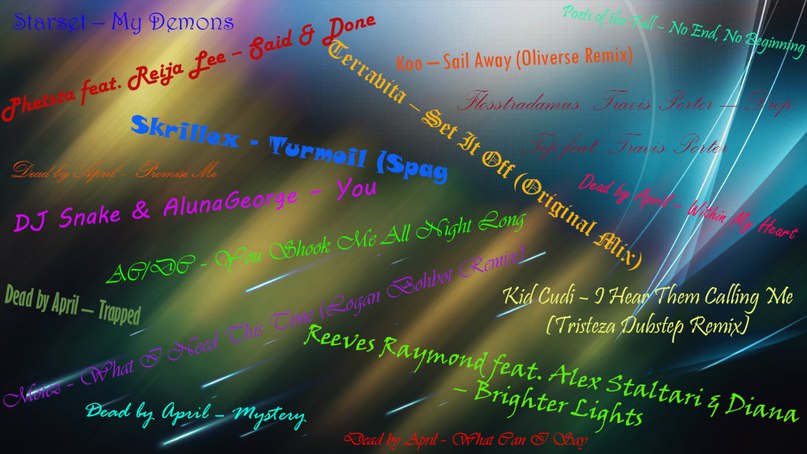 Starset – My Demons
Poets of the Fall – No End, No Beginning
Phetsta feat. Reija Lee – Said & Done
Koo – Sail Away (Oliverse Remix)
Terravita – Set It Off (Original Mix)
Flosstradamus, Travis Porter – Drop
Top feat. Travis Porter
Skrillex - Turmoil (Spag
Dead by April - Promise Me
DJ Snake & AlunaGeorge – You
Dead by April – Within My Heart
AC/DC - You Shook Me All Night Long
Dead by April – Trapped
Kid Cudi – I Hear Them Calling Me
(Tristeza Dubstep Remix)
- What I Need This Time (Logan Bohbot Remix)
Reeves Raymond feat. Alex Staltari & Diana
– Brighter Lights
Dead by April – Mystery
Dead by April - What Can I Say